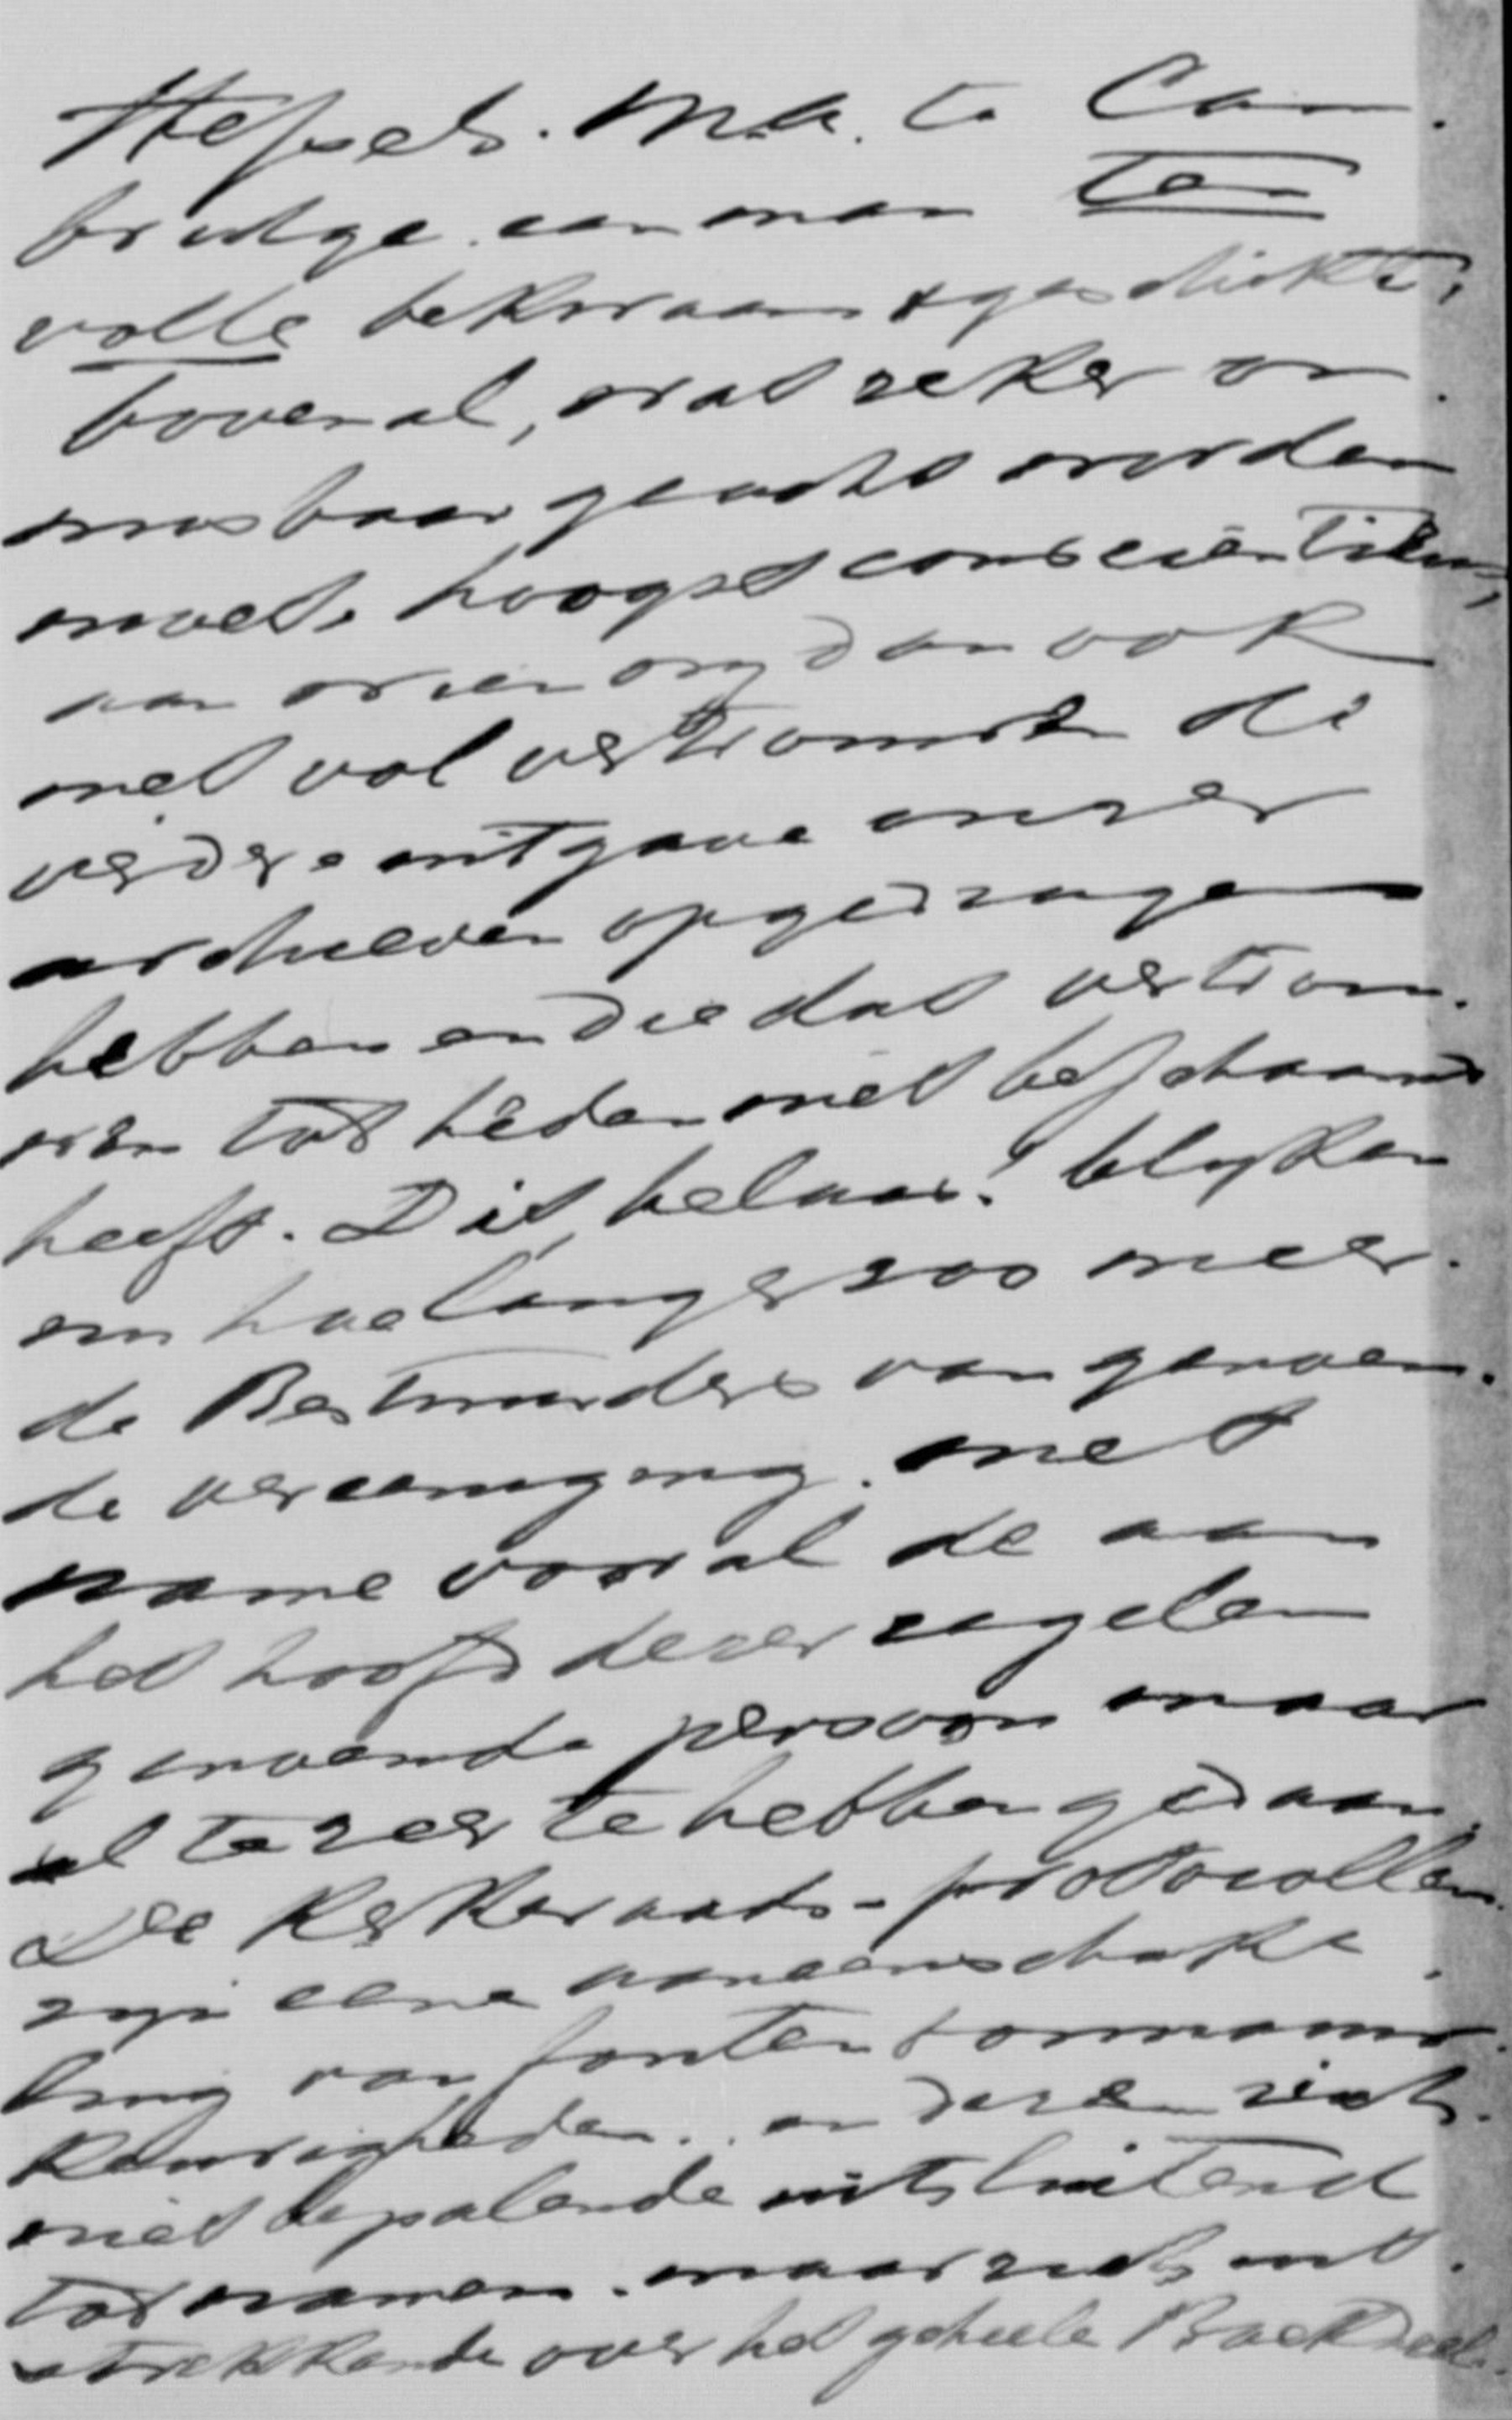 Hessels. M.A. te Cam-
bridge. een man ten
volle bekwaam & geschikt,
bovenal, wat zeker on-
misbaar geacht worden
moet, hoogst conscientieus,
aan wien wy dan ook
met vol vertrouwen de
verdere uitgave onzer
archieven opgedragen
hebben en die dat vertrou-
wen tot heden niet beschaamd
heeft. Dit, helaas! blyken
om hoe langer zoo meer
de Bestuurders van genoem-
de vereeniging. met
name vooral de aan
het hoofd dezer regelen
genoemde persoon maar
al te zeer te hebben gedaan.
De Kerkeraads-protocollen
zyn eene aaneenschake-
ling van fouten & onnauw-
keurigheden.. en deze zich
niet bepalende uitsluitend
tot namen. maar zich uit-
strekkende over het geheele Boekdeel.